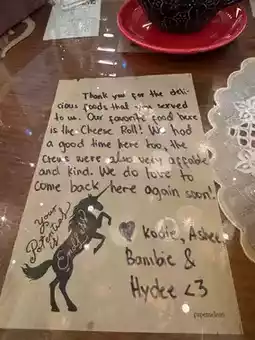 Thank you for the deli-
cious foods that you served
to us. Our favorite food here
is the Cheese Roll! We had
a good time here too, the
crews were also very affable
and kind. We do love to
come back here again soon!
♥ Kodie, Ashee,
Bambie &
Hydee <3
your
Potatoes
papemelroti